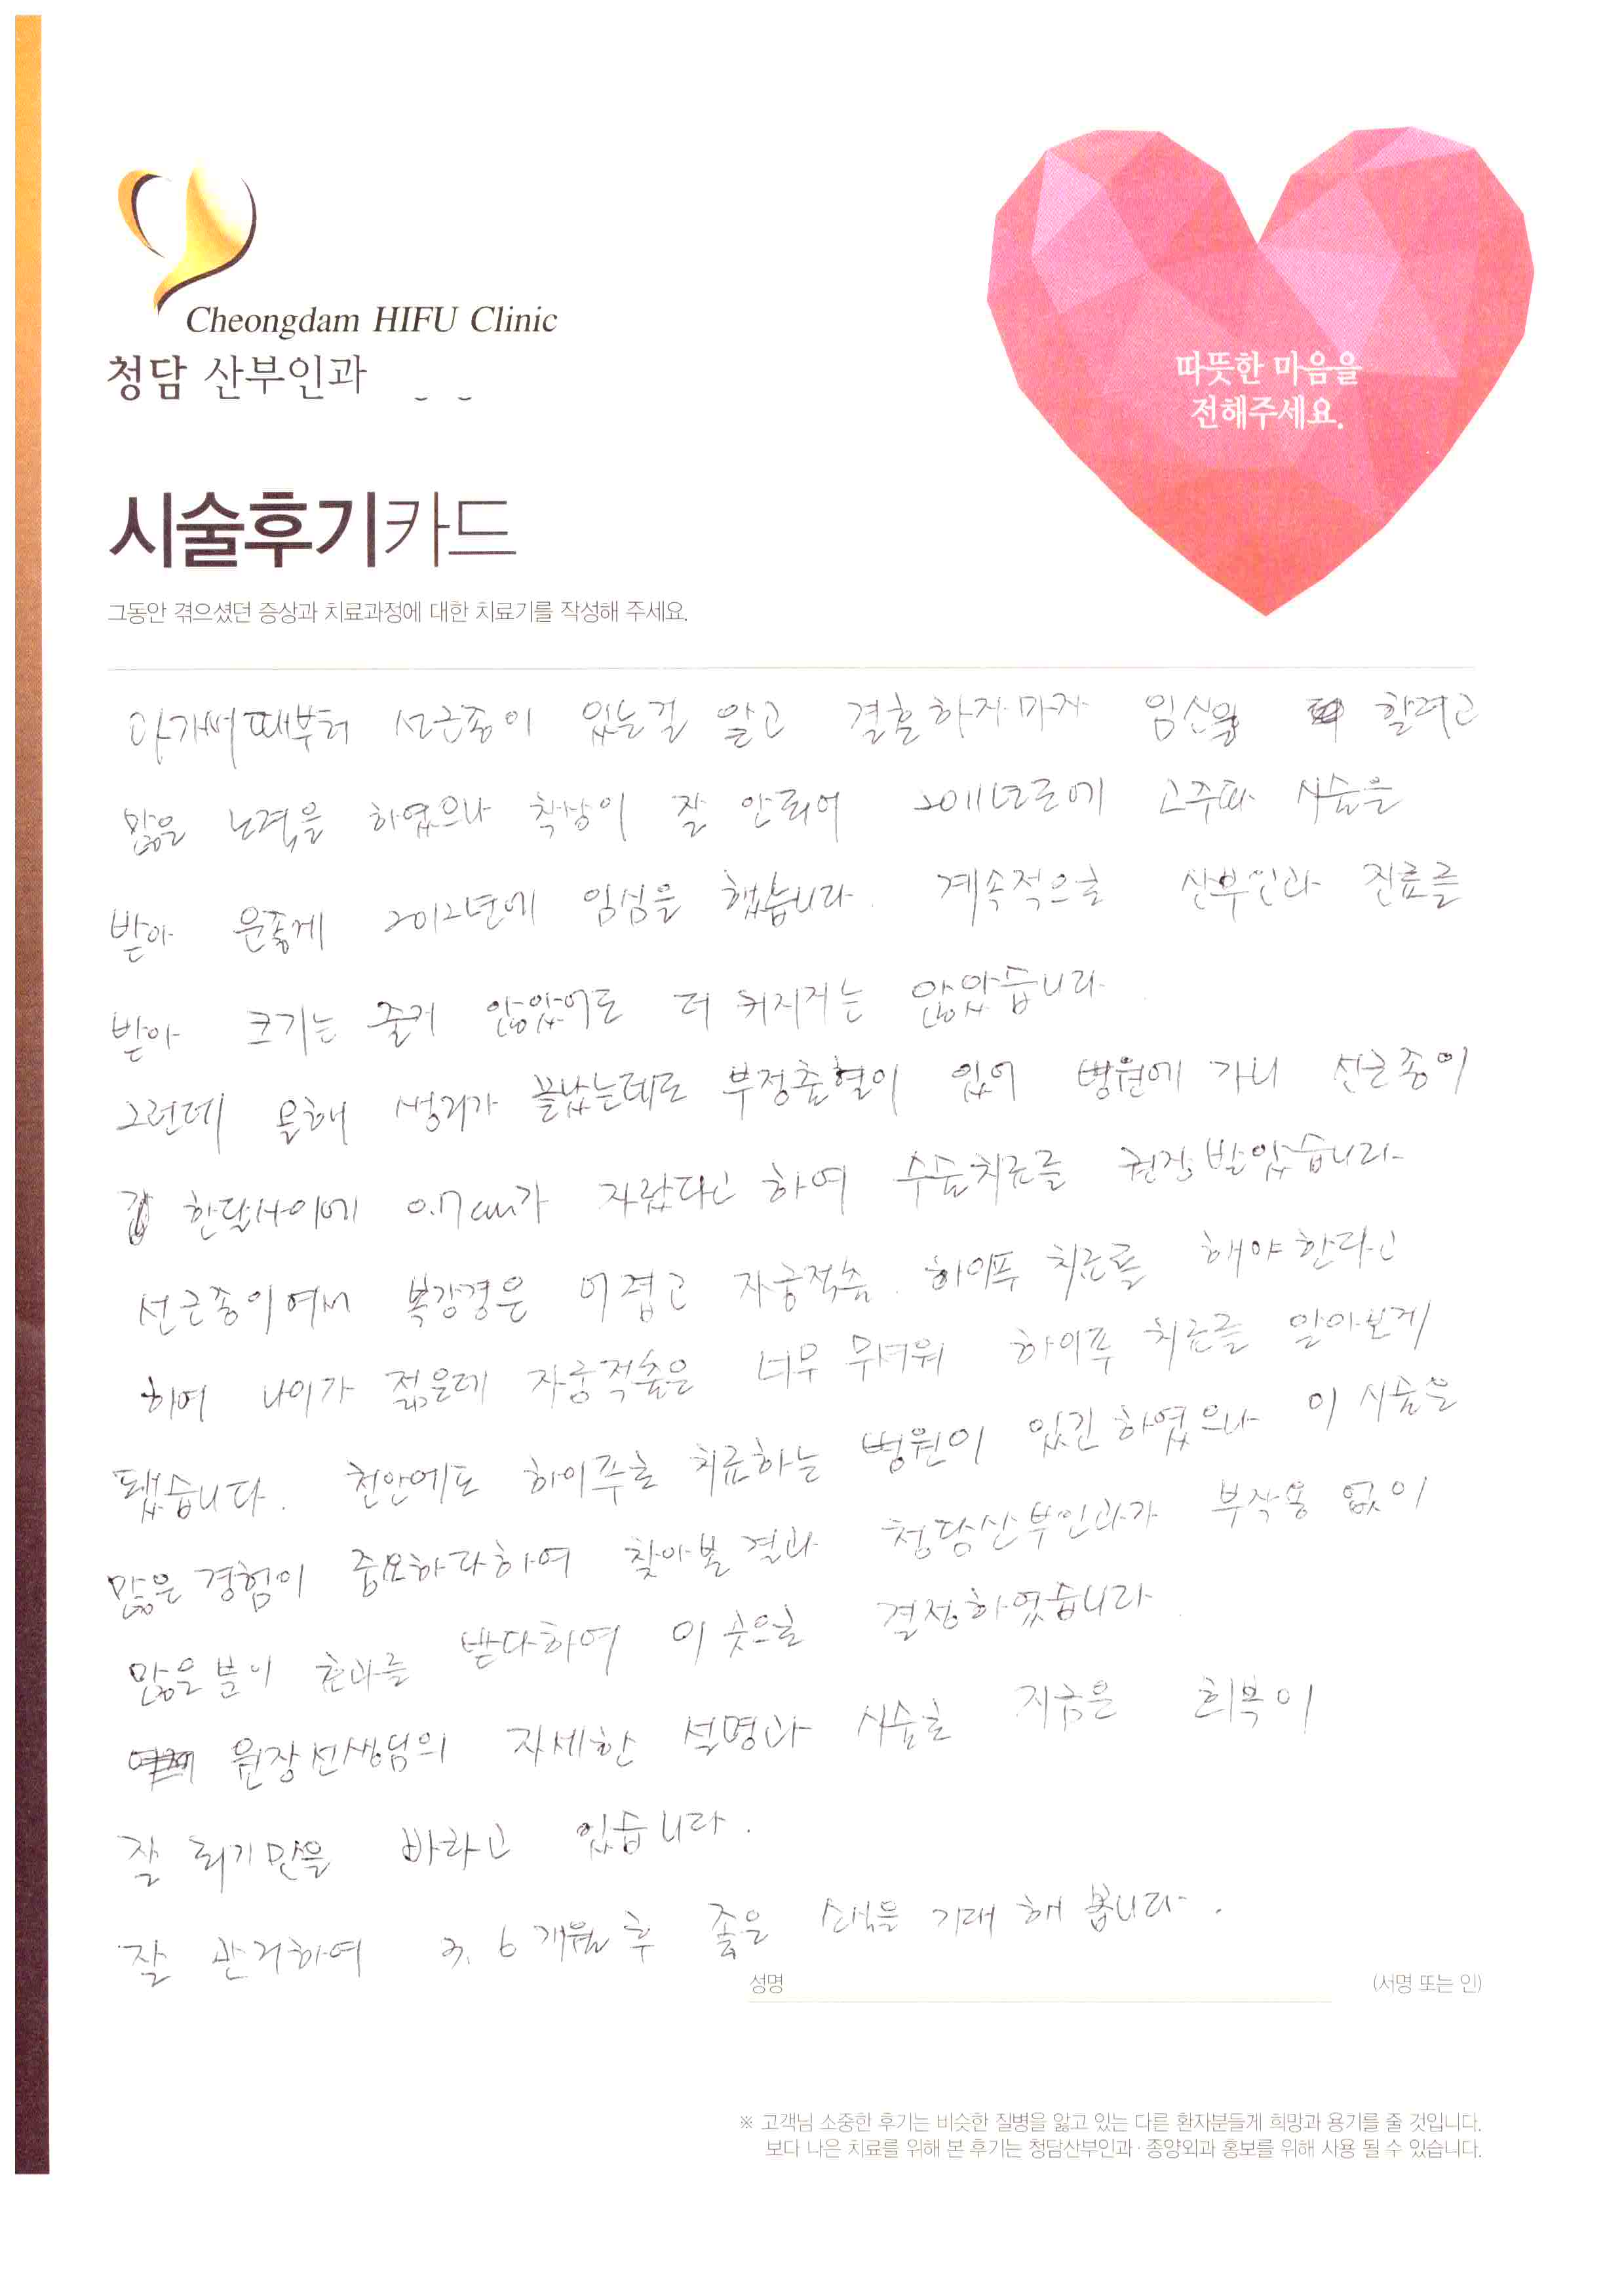 Cheongdam HIFU Clinic
청담 산부인과
따뜻한 마음을
전해주세요.
시술후기카드
그동안 겪으셨던 증상과 치료과정에 대한 치료기를 작성해 주세요.
아가씨때부터 선근종이 있는걸 알고 결혼하자마자 임신을 할려고
많은 노력을 하였으나 착상이 잘 안되어 2011년도에 고주파 시술을
받아 운좋게 2012년에 임심을 했습니다. 계속적으로 산부인과 진료를
받아 크기는 줄지 않았어도 더 커지지는 않았습니다.
그런데 올해 생리가 끝났는데도 부정출혈이 있어 병원에 가니 선근종이
한달사이에 0.7cm가 자랐다고 하여 수술치료를 권장받았습니다.
선근종이여서 복강경은 어렵고 자궁적출. 하이푸 치료를 해야한다고
하여 나이가 젊은데 자궁적출은 너무 무서워 하이푸 치료를 알아보게
됐습니다. 천안에도 하이푸로 치료하는 병원이 있긴 하였으나 이 시술은
많은 경험이 중요하다하여 찾아본 결과 청담산부인과가 부작용 없이
많은분이 효과를 받다하여 이 곳으로 결정하였습니다.
원장선생님의 자세한 설명과 시술로 지금은 회복이
잘 되기만을 바라고 있습니다.
잘 관리하여 3. 6개월 후 좋은 소식을 기대 해 봅니다.
성명 (서명 또는 인)
※ 고객님 소중한 후기는 비슷한 질병을 앓고 있는 다른 환자분들게 희망과 용기를 줄 것입니다.
보다 나은 치료를 위해 본 후기는 청담산부인과·종양외과 홍보를 위해 사용 될 수 있습니다.